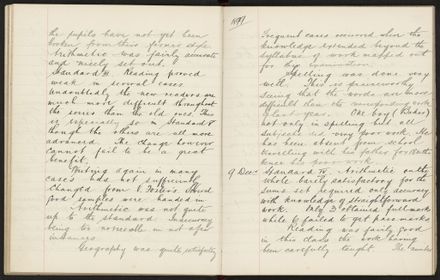 the pupils have not yet been
broken from their former style
Arithmetic was fairly accurate
and nicely set out.
Standard III. Reading proved
weak in several cases.
Undoubtedly the new readers are
much more difficult throughout
the series than the old ones. This
is especially so in Standard
though the others are all more
advanced. The change however
cannot fail to be a great
benefit.
Writing again in many
cases had not sufficiently
changed from
good samples were handed in
Arithmetic was not quite
up to the standard. Inaccuracy
being too noticeable in not a few
instances
Geography was quite satisfactory
1899
Frequent cases occurred where the
knowledge extended beyond the
syllabus of work mapped out
for this examination.
Spelling was done very
well. This is praiseworthy
seeing that the words are more
difficult than the corresponding work
of last year. One boy
not only in spelling but all
subjects did very poor work. He
has been absent from school
travelling with his father
hence his poor work
9 Dec. Standard IV. Arithmetic on the
whole barely satisfactory for the
sums set required only accuracy
with knowledge of straightforward
work. Only 3 obtained full mark
while 6 failed to get pass marks
Reading was fairly good
in this class the work having
been carefully taught. The